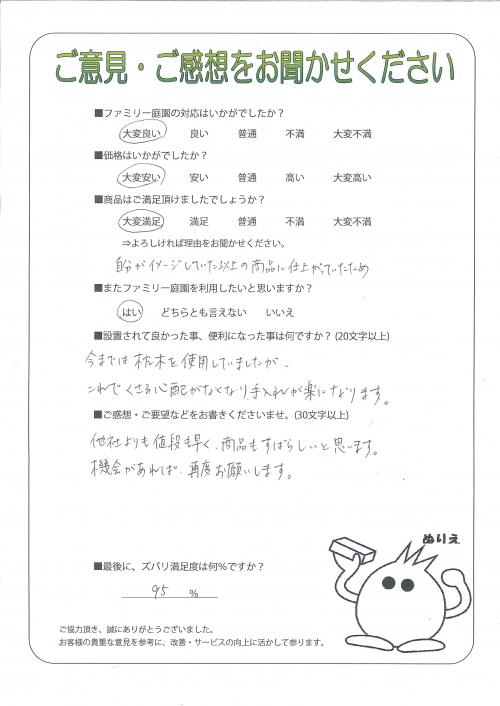 ご意見・ご感想をお聞かせください
■ファミリー庭園の対応はいかがでしたか？
大変良い 良い 普通 不満 大変不満
■価格はいかがでしたか？
大変安い 安い 普通 高い 大変高い
■商品はご満足頂けましたでしょうか？
大変満足 満足 普通 不満 大変不満
⇒よろしければ理由をお聞かせください。
自分がイメージしていた以上の商品に仕上がっていたため
■またファミリー庭園を利用したいと思いますか？
はい どちらとも言えない いいえ
■設置されて良かった事、便利になった事は何ですか？(20文字以上)
今までは枕木を使用していましたが、
これでくさる心配がなくなり、手入れが楽になります。
■ご感想・ご要望などをお書きくださいませ。(30文字以上)
他社よりも値段も早く、商品もすばらしいと思います。
機会があれば、再度お願いします。
ぬりえ
■最後に、ズバリ満足度は何%ですか？
95 %
ご協力頂き、誠にありがとうございました。
お客様の貴重な意見を参考に、改善・サービスの向上に活かして参ります。